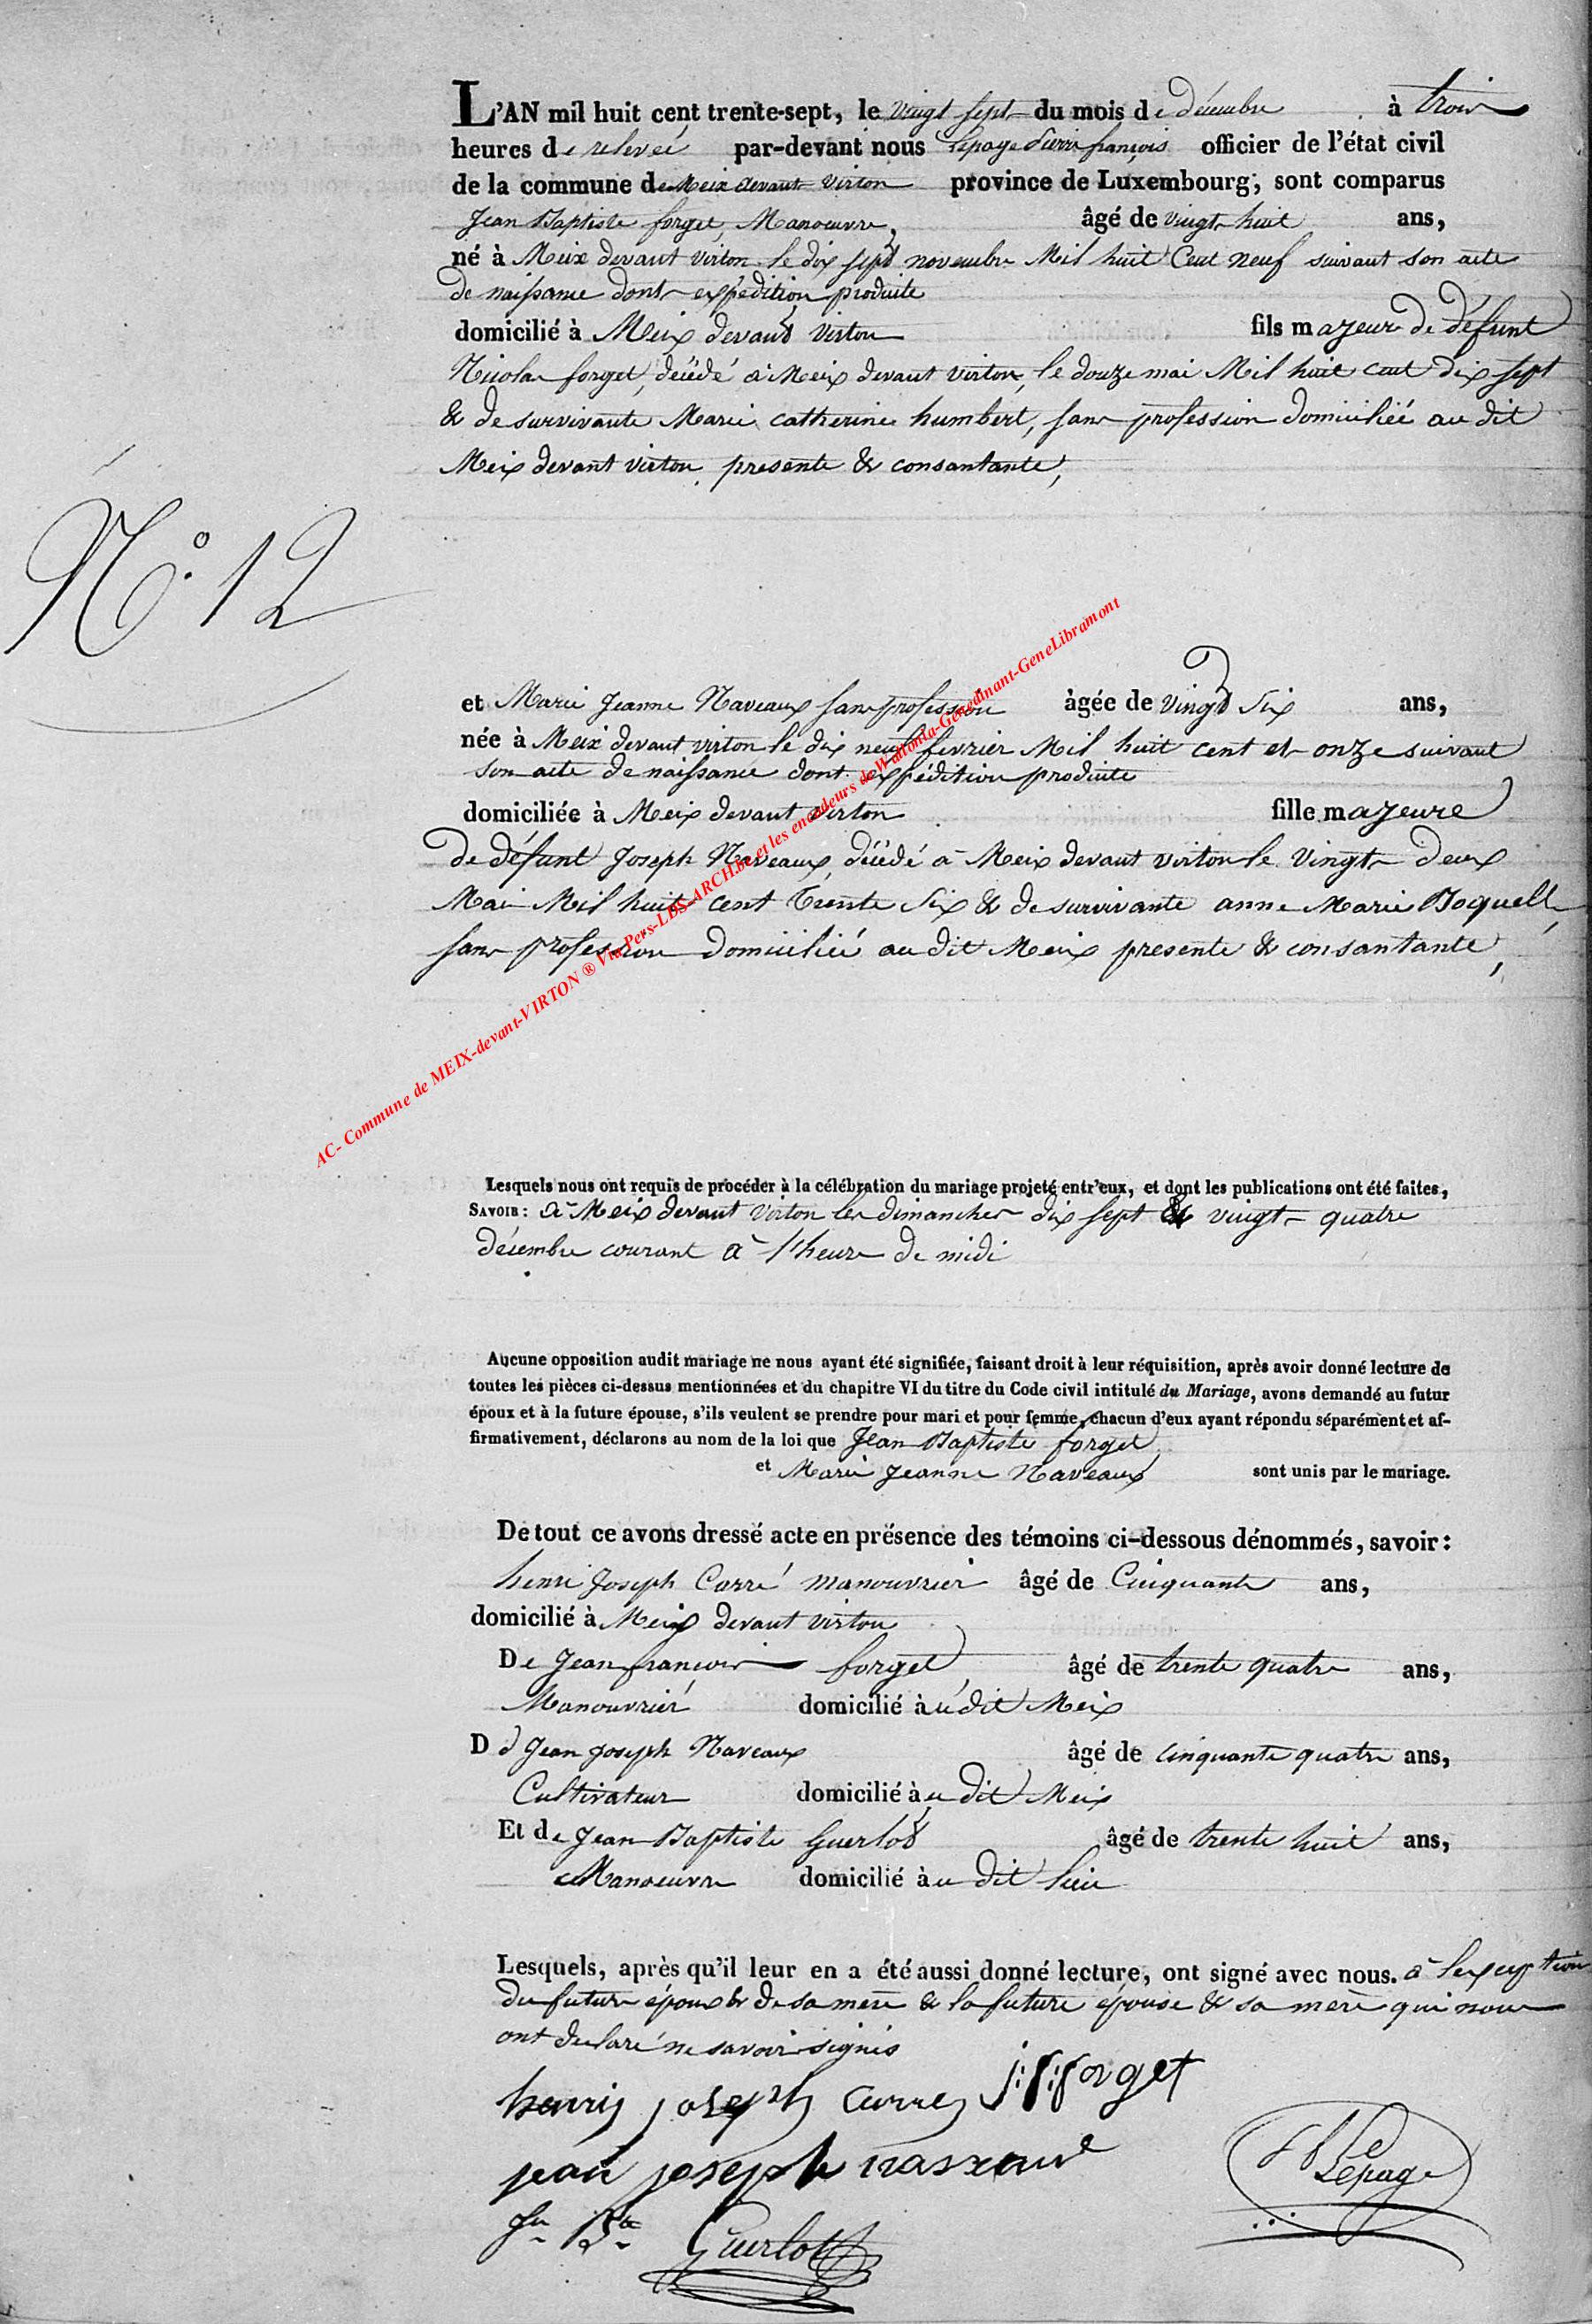 L'AN mil huit cent trente-sept, le vingt sept du mois de décembre à trois
heures de relevée par-devant nous Lepage Pierre françois officier de l'état civil
de la commune de Meix devant Virton province de Luxembourg, sont comparus
Jean Baptiste forget, Manoeuvre, âgé de vingt huit ans,
né à Meix devant virton le dix sept novembre Mil huit Cent neuf suivant son acte
de naissance dont expédition produite
domicilié à Meix devant Virton fils majeur de défunt
Nicolas forget, décédé à Meix devant virton, le douze mai Mil huit cent dix sept
& de survivante Marie catherine humbert, sans profession domiciliée au dit
Meix devant virton, presente & consantante,
N.° 12
et Marie Jeanne Naveaux sans profession âgée de vingt Six ans,
née à Meix devant virton le dix neuf fevrier Mil huit cent et onze suivant
son acte de naissance dont expédition produite
domiciliée à Meix devant virton fille majeure
de défunt Joseph Naveaux, décédé à Meix devant virton le Vingt Deux
Mai Mil huit cent Trente Six & de survivante anne Marie
sans profession domiciliée au dit Meix presente & consantante,
AC- Commune de MEIX-devant-VIRTON ® Via Pers-LDS-ARCH.be et les encodeurs de Wallonia-Genedinant-GeneLibramont
Lesquels nous ont requis de procéder à la célébration du mariage projeté entr'eux, et dont les publications ont été faites,
SAVOIR: à Meix devant Virton les dimanches dix sept & vingt quatre
décembre courant à l'heure de midi
Aucune opposition audit mariage ne nous ayant été signifiée, faisant droit à leur réquisition, après avoir donné lecture de
toutes les pièces ci-dessus mentionnées et du chapitre VI du titre du Code civil intitulé du Mariage, avons demandé au futur
époux et à la future épouse, s'ils veulent se prendre pour mari et pour femme, chacun d'eux ayant répondu séparément et af-
firmativement, déclarons au nom de la loi que Jean Baptiste forget
et Marie Jeanne Naveaux sont unis par le mariage.
De tout ce avons dressé acte en présence des témoins ci-dessous dénommés, savoir:
henri Joseph Carré manouvrier âgé de Cinquante ans,
domicilié à Meix devant virton
De Jean françois forget, âgé de trente quatre ans,
Manouvrier domicilié àu dit Meix
D d Jean joseph Naveaux âgé de cinquante quatre ans,
Cultivateur domicilié àu dit Meix
Et de Jean Baptiste Guerlot âgé de trente huit ans,
Manoeuvre domicilié àu dit lieu
Lesquels, après qu'il leur en a été aussi donné lecture, ont signé avec nous. à lexception
du futur époux & de sa mere & la future épouse & sa mere qui nous
ont declaré ne savoir signés
henrij joseph Carrez j:f:forget
jean joseph
Jn Bte Guerlot
Lepage